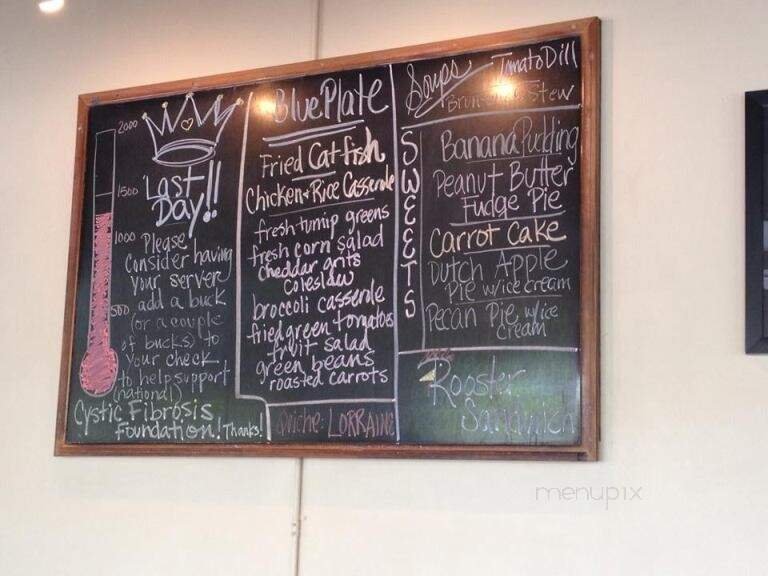 2000
1500
1000
500
Last
Day!!
Please
consider having
your server
add a buck
(or a couple
of bucks) to
your check
to help support
(national)
Cystic Fibrosis
Foundation! Thanks!
Blue Plate
Fried Catfish
Chicken + Rice Casserole
fresh turnip greens
fresh corn salad
cheddar grits
coleslaw
broccoli casserole
fried green tomatoes
fruit salad
green beans
roasted carrots
Quiche: LORRAINE
Soups
Tomato Dill
Stew
SWEETS
Banana Pudding
Peanut Butter
Fudge Pie
Carrot Cake
Dutch Apple
Pie w/ice cream
Pecan Pie w/ice
cream
Rooster
Sandwich
menupix